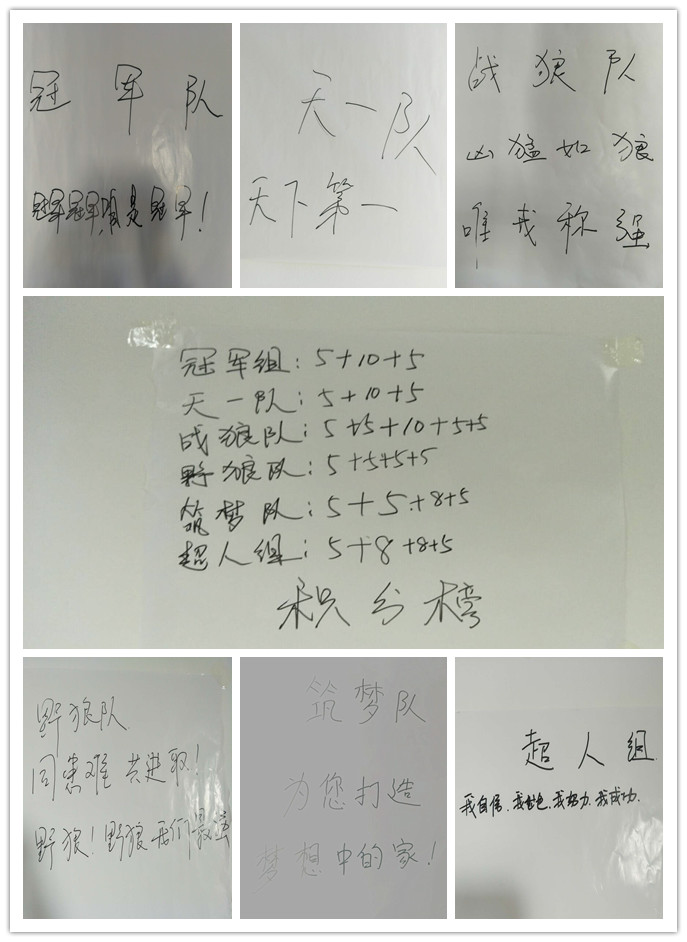 冠军队
冠军冠军,咱是冠军!
天一队
天下第一
战狼队
凶猛如狼
唯我称强
冠军组:5+10+5
天一队:5+10+5
战狼队:5+5+10+5+5
野狼队:5+5+5+5
筑梦队:5+5+8+5
超人组:5+8+8+5
积分榜
野狼队
同患难 共进取!
野狼!野狼 我们最强
筑梦队
为您打造
梦想中的家!
超人组
我自信、我出色、我努力、我成功.